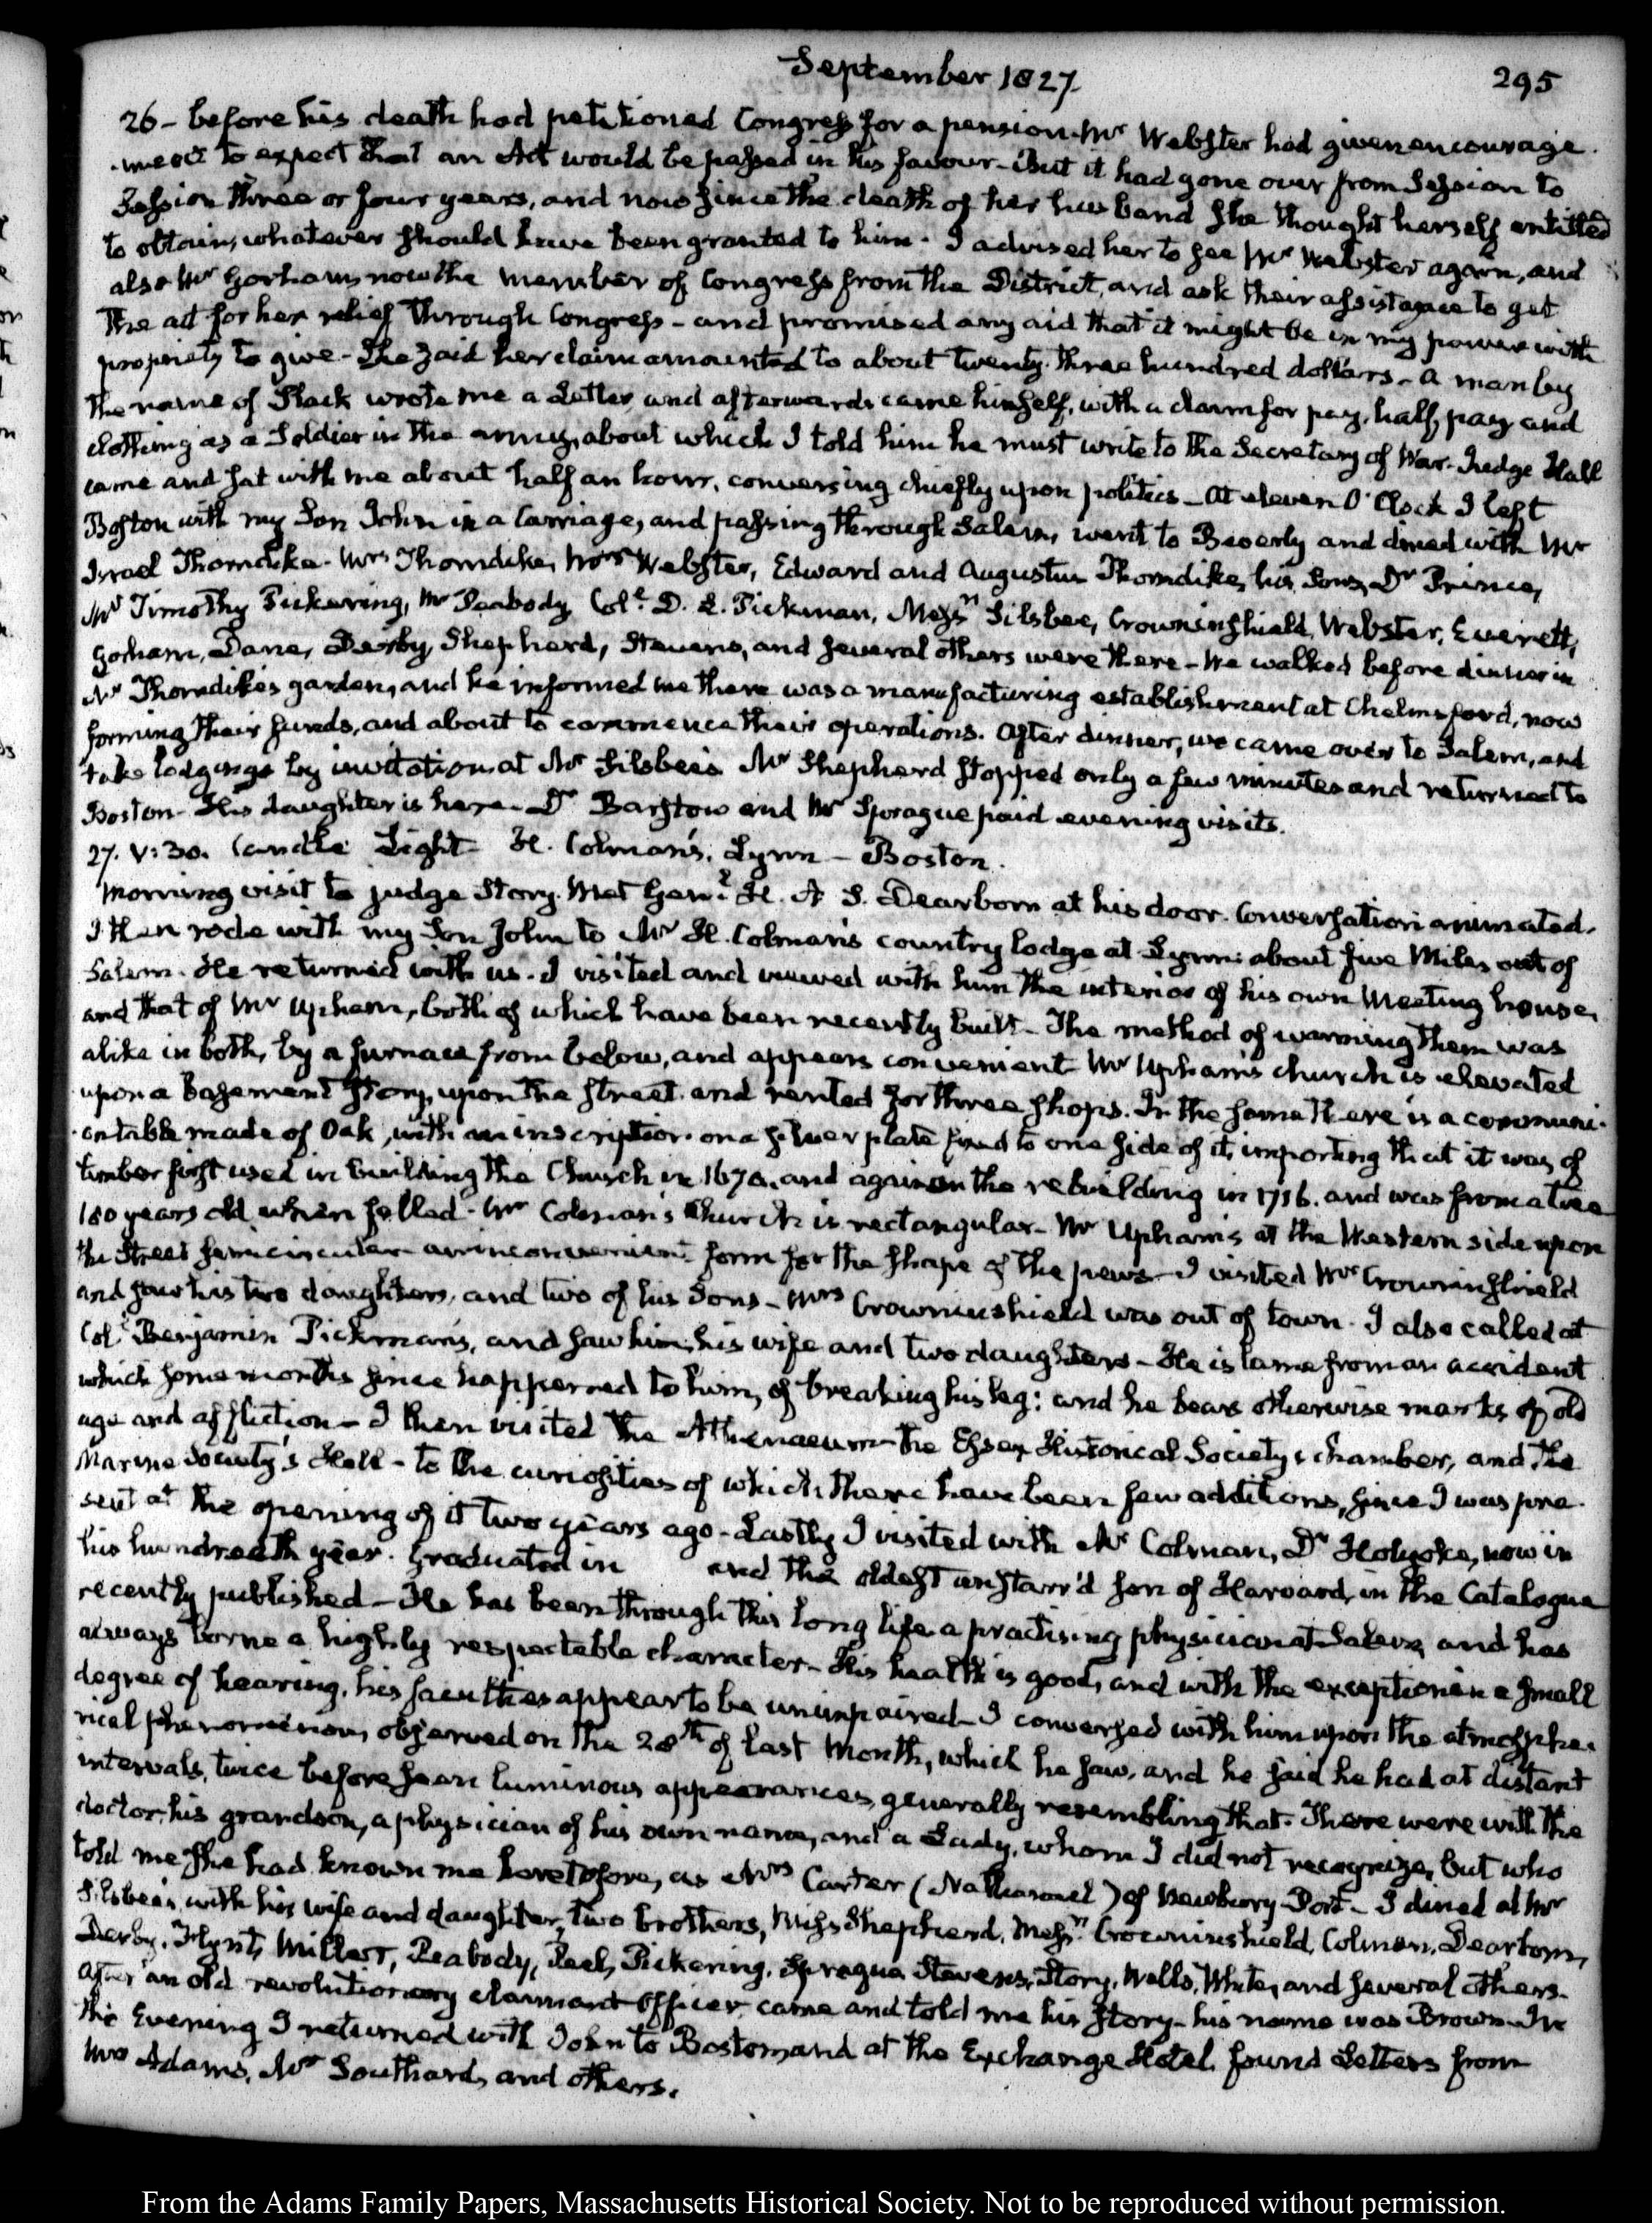 September 1827.
295
26 - before his death had petitioned Congress for a pension. Mr Webster had given encourage-
-ment to expect that an Act would be passed in his favour - But it had gone over from Session to
Session three or four years, and now since the death of her husband she thought herself entitled
to obtain, whatever should have been granted to him. I advised her to see Mr Webster again, and
also Mr Gorham, now the member of Congress from the District, and ask their assistance to get
the act for her relief through Congress - and promised any aid that it might be in my power with
propriety to give - She said her claim amounted to about twenty-three hundred dollars - A man by
the name of Slack wrote me a Letter, and afterwards came himself, with a claim for pay, half pay and
clothing as a Soldier in the army, about which I told him he must write to the Secretary of War. Judge Hall
came and sat with me about half an hour, conversing chiefly upon politics - At eleven O'Clock I left
Boston with my Son John in a Carriage, and passing through Salem, went to Beverly and dined with Mr
Israel Thorndike. Mrs Thorndike, Webster, Edward and Augustus Thorndike, his Sons, Dr Prince,
Mr Timothy Pickering, Mr Peabody, Coll. D. L. Pickman, Messrs Silsbee, Crowninshield, Webster, Everett,
Gorham, Dane, Derby, Shepherd, Stevens, and several others were there - We walked before dinner in
Mr Thorndike's garden, and he informed me there was a manufacturing establishment at Chelmsford, now
forming their funds, and about to commence their operations. After dinner, we came over to Salem, and
take lodgings by invitation at Mr Silsbee's Mr Shepherd stopped only a few minutes and returned to
Boston - His daughter is here - Dr Barstow and Mr Sprague paid evening visits.
27. V:30. Candle Light H. Colman's, Lynn - Boston.
Morning visit to judge Story. Met Genl. H. A. S. Dearborn at his door. Conversation animated.
I then rode with my Son John to Mr H. Colman's country lodge at Lynn: about five Miles out of
Salem. He returned with us. I visited and viewed with him the interior of his own Meeting house,
and that of Mr Upham, both of which have been recently built - The method of warming them was
alike in both, by a furnace from below, and appears convenient Mr Upham's church is elevated
upon a basement story, upon the street and rented for three shops. In the same there is a communi-
-on table made of Oak, with an inscription on a silver plate fixed to one side of it, importing that it was of
timber first used in building the Church in 1670. and again on the rebuilding in 1716. and was from a tree
180 years old when felled. Mr Colman's Church is rectangular - Mr Upham's at the Western side upon
the Street semicircular an inconvenient form for the shape of the pews - I visited Mr Crowninshield
and saw his two daughters, and two of his Sons - Mrs Crowninshield was out of town. I also called at
Coll. Benjamin Pickman's, and saw him, his wife and two daughters - He is lame from an accident
which some months since happened to him, of breaking his leg: and he bears otherwise marks of old
age and affliction - I then visited the Athenaeum - the Essex Historical Society's chamber, and the
Marine Society's Hall - to the curiosities of which there have been few additions, since I was pre-
sent at the opening of it two years ago - Lastly I visited with Mr Colman, Dr Holyoke, now in
his hundredth year. Graduated in and the oldest unstarr'd son of Harvard, in the Catalogue
recently published - He has been through this long life a practising physician at Salem, and has
always borne a highly respectable character - His health is good, and with the exception in a small
degree of hearing, his faculties appear to be unimpaired - I conversed with him upon the atmosphe-
rical phenomenon, observed on the 28th of last Month, which he saw, and he said he had at distant
intervals, twice before seen luminous appearances, generally resembling that. There were with the
doctor, his grandson, a physician of his own name, and a Lady, whom I did not recognize, but who
told me she had known me heretofore, as Mrs Carter (Nathaniel) of Newbury-Port - I dined at Mr
Silsbee's with his wife and daughter, two brothers, Miss Shepherd, Messrs Crowninshield, Colman, Dearborn,
Derby, Flynt, Millett, Peabody, Peel, Pickering, Sprague, Stevens, Story, Wells, White, and several others.
After an old revolutionary claimant Officer, came and told me his Story - his name was Brown - In
the Evening I returned with John to Boston, and at the Exchange Hotel found Letters from
Mrs Adams, Mr Southard, and others.
From the Adams Family Papers, Massachusetts Historical Society. Not to be reproduced without permission.